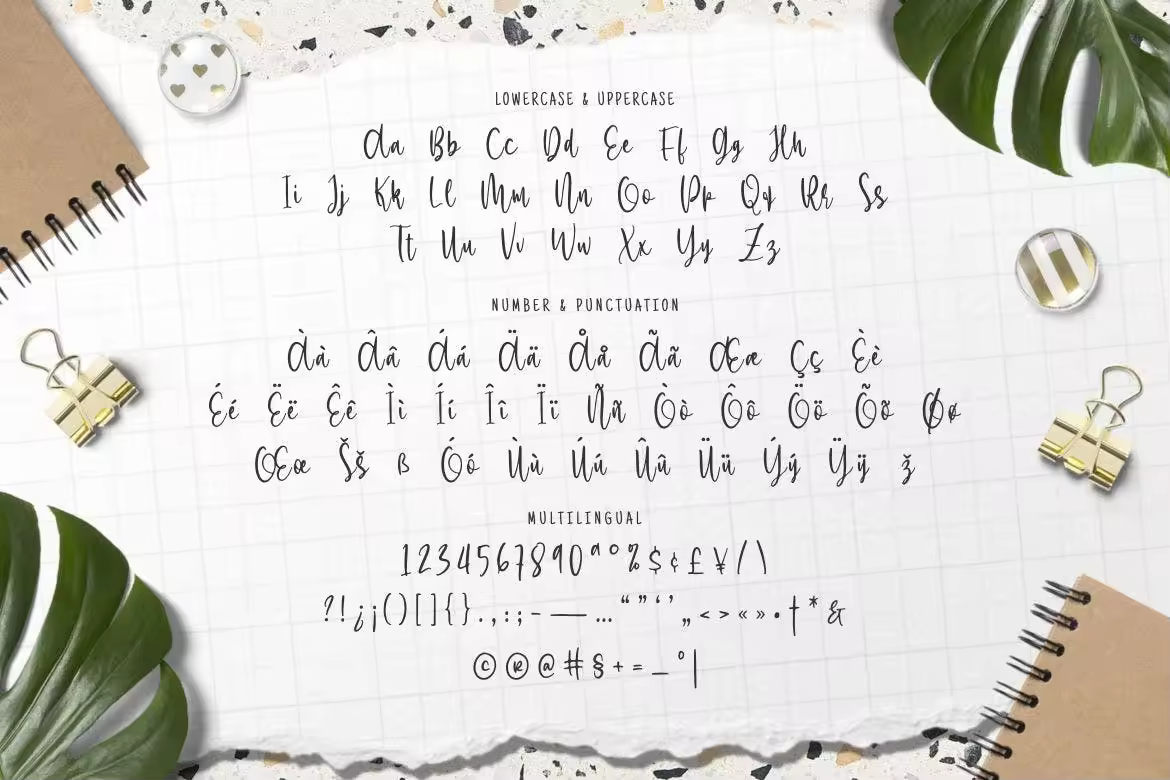 LOWERCASE & UPPERCASE
Aa Bb Cc Dd Ee Ff Gg Hh
Ii Jj Kk Ll Mm Nn Oo Pp Qq Rr Ss
Tt Uu Vv Ww Xx Yy Zz
NUMBER & PUNCTUATION
Àà Ââ Áá Ää Åå Ãã Ææ Çç Èè
Éé Ëë Êê Ìì Íí Îî Ïï Ññ Òò Ôô Öö Õõ Øø
Œœ Šš ß Óó Ùù Úú Ûû Üü Ýý Ÿÿ ž
MULTILINGUAL
1234567890ªº%$¢£¥/\
?!¿¡()[]{}.,:;-—…“”‘’„<>«»•†*&
©®@#§+=_°|